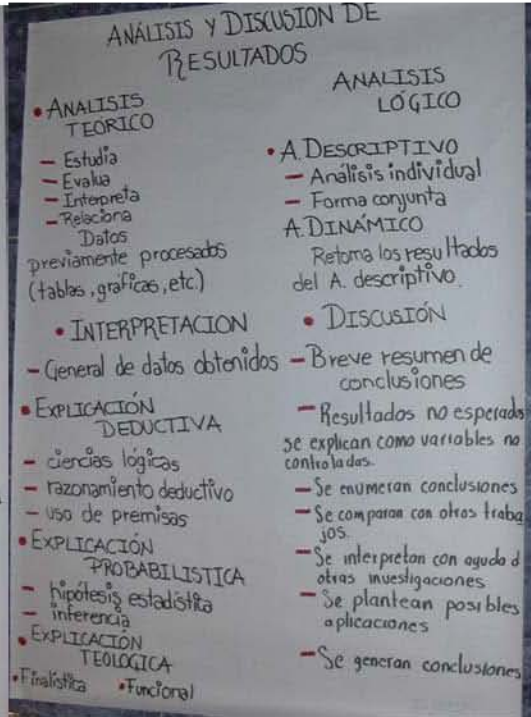 ANÁLISIS Y DISCUSION DE
RESULTADOS
• ANALISIS
TEÓRICO
— Estudia
— Evalua
— Interpreta
— Relaciona
Datos
previamente procesados
(tablas, graficas, etc.)
• INTERPRETACION
— General de datos obtenidos
• EXPLICACIÓN
DEDUCTIVA
— ciencias lógicas
— razonamiento deductivo
— uso de premisas
• EXPLICACIÓN
PROBABILISTICA
— hipótesis estadística
— inferencia
• EXPLICACIÓN
TEOLOGICA
• Finalística • Funcional
ANALISIS
LÓGICO
• A. DESCRIPTIVO
— Análisis individual
— Forma conjunta
A. DINÁMICO
Retoma los resultados
del A. descriptivo.
• DISCUSIÓN
— Breve resumen de
conclusiones
— Resultados no esperados
se explican como variables no
controladas.
— Se enumeran conclusiones
— Se comparan con otros traba
jos.
— Se interpretan con ayuda d
otras investigaciones
— Se plantean posibles
aplicaciones
— Se generan conclusiones